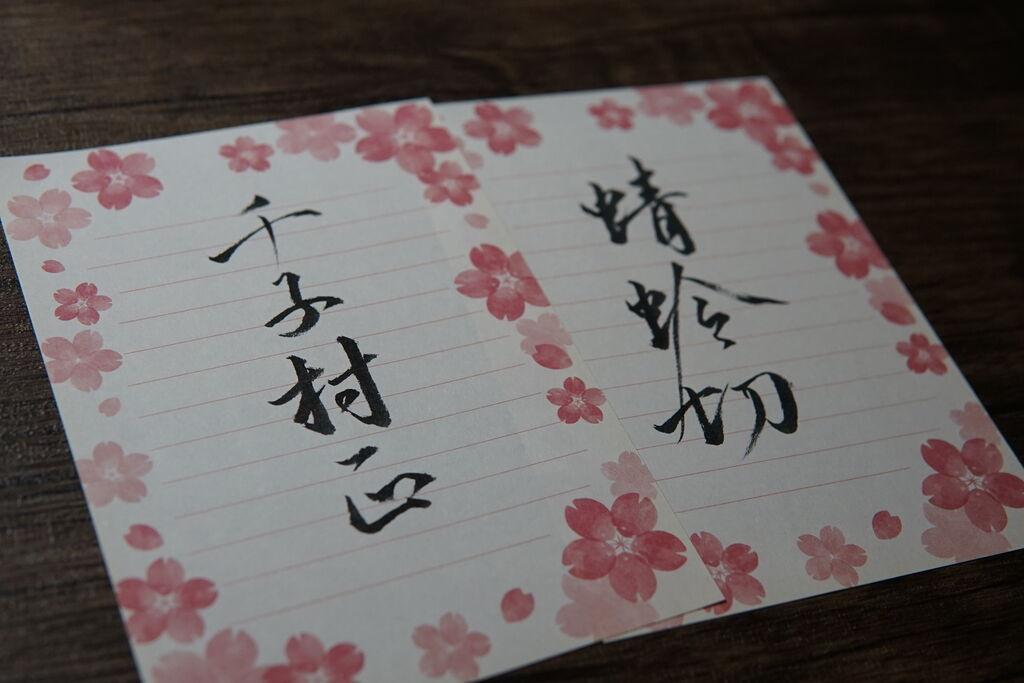 千子村正
蜻蛉切